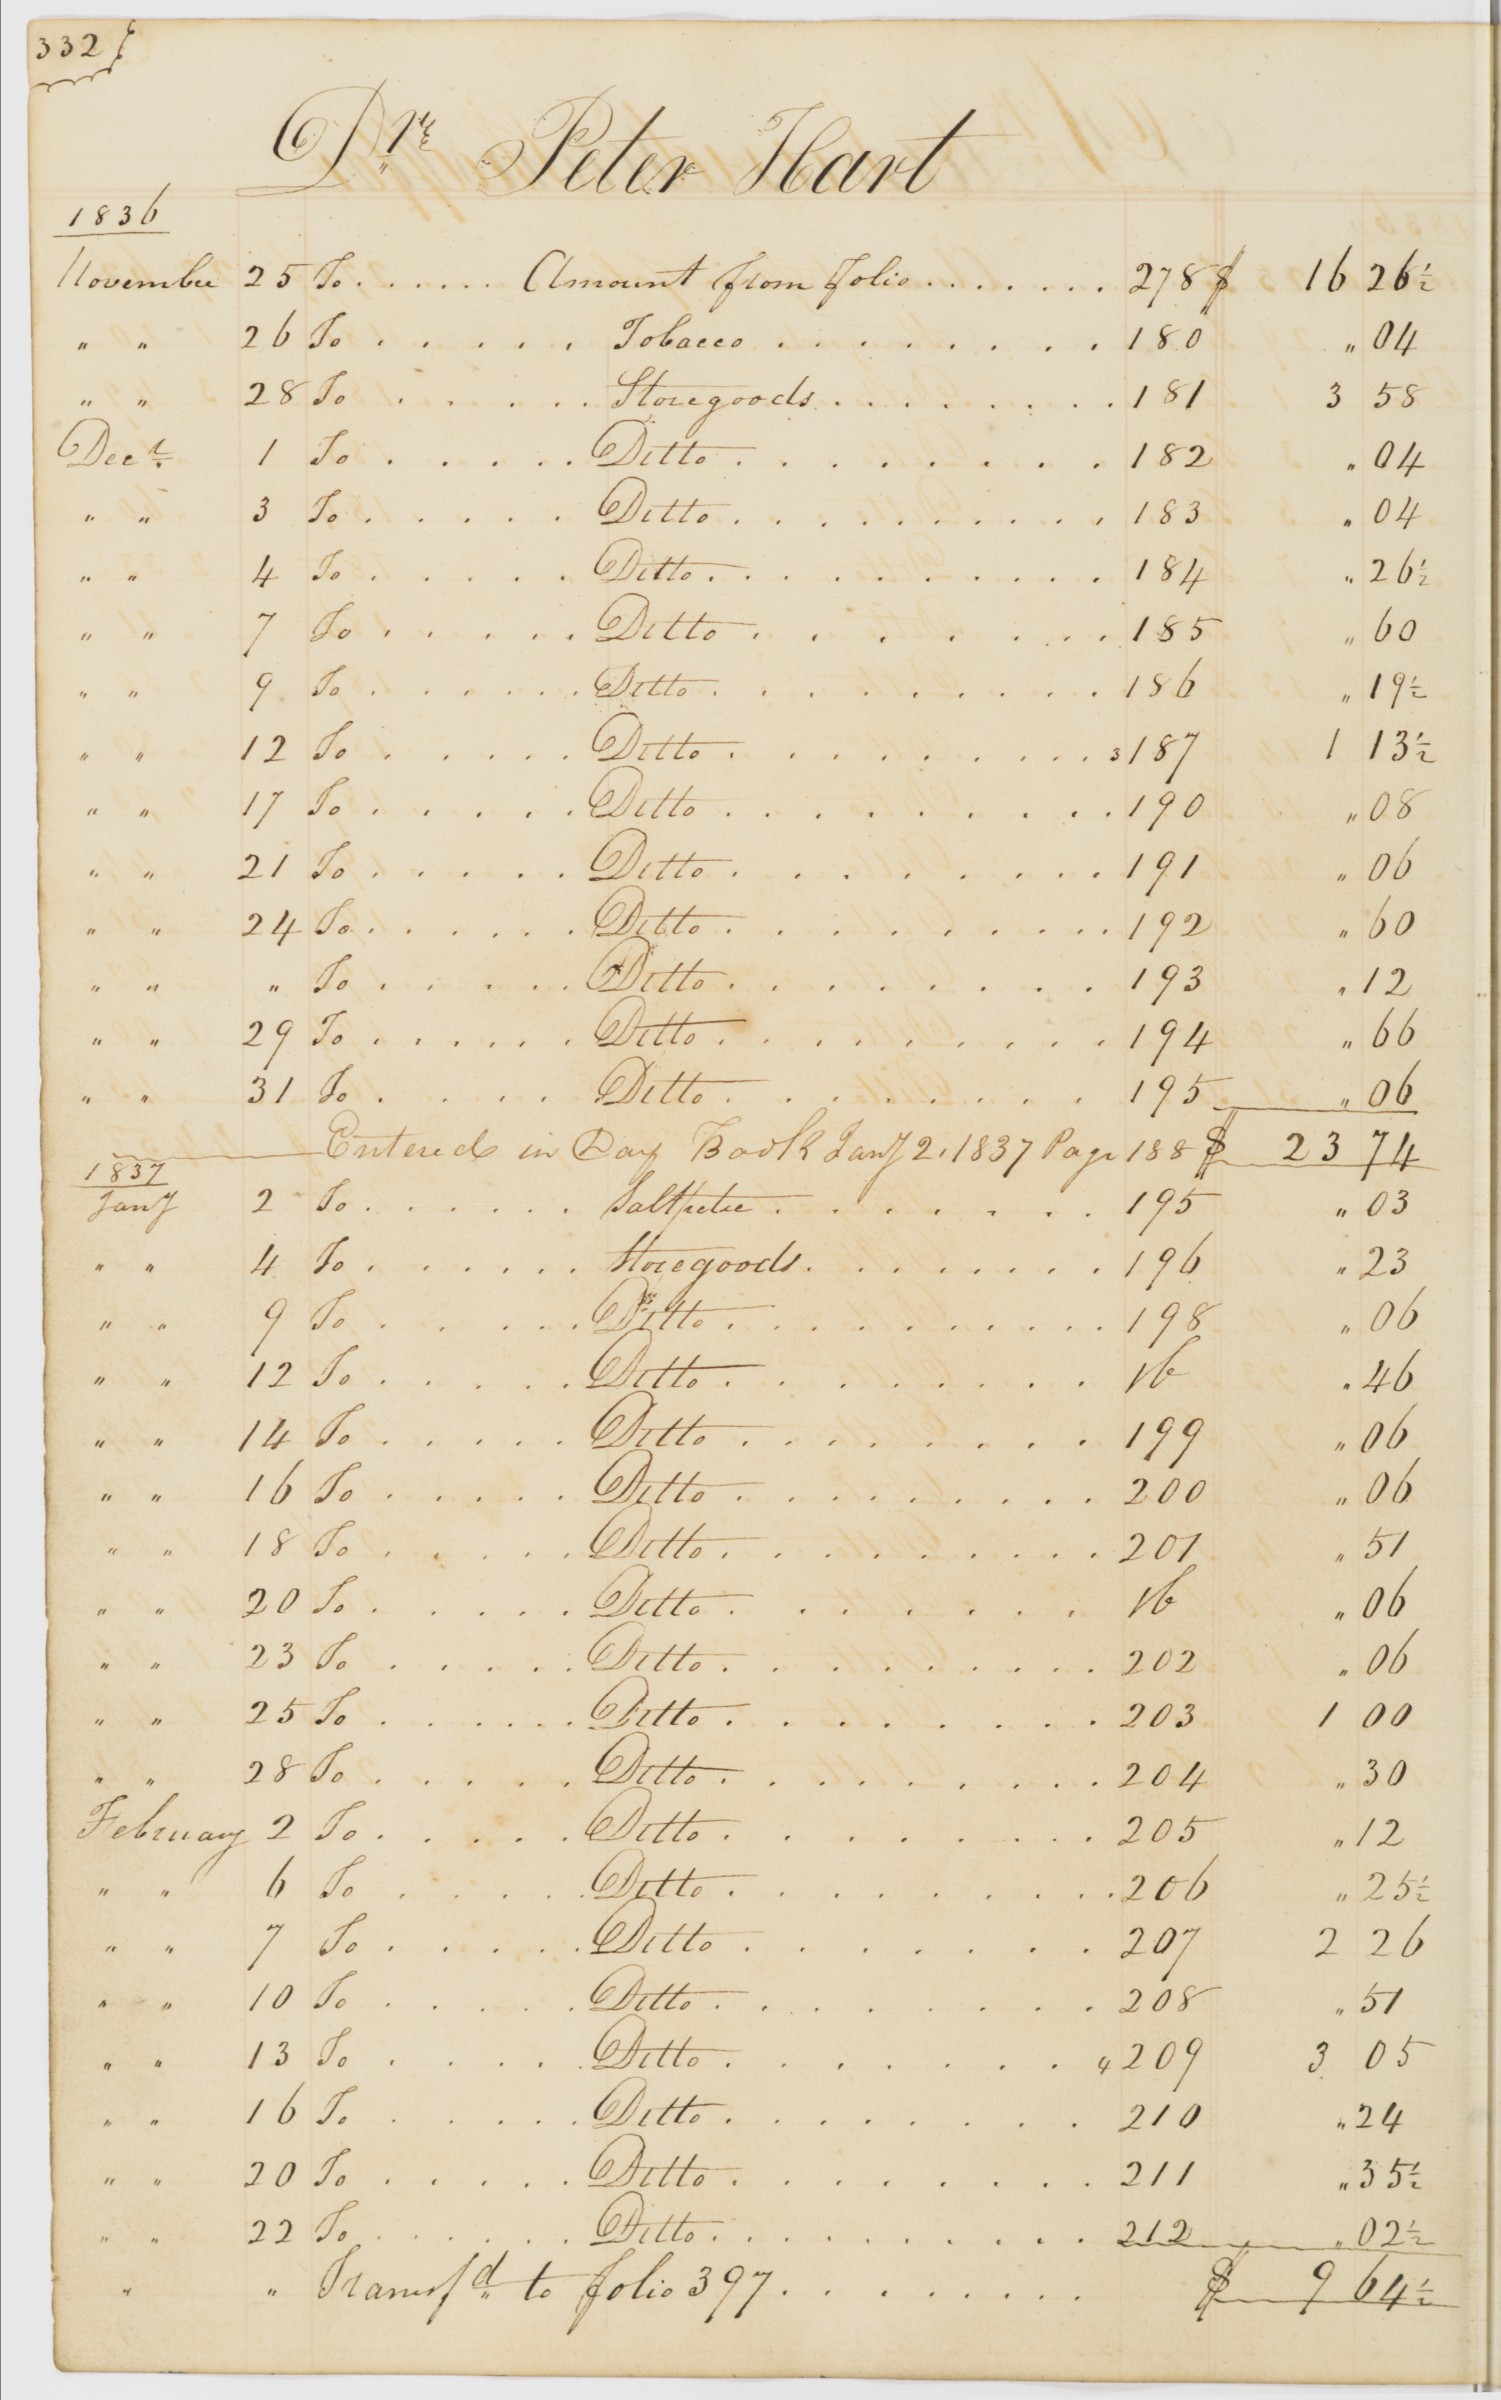 332
Dr. Peter Hart
1836
November 25 To . . . . . . Amount from folio . . . . . . . 278 $ 16 26½
" " 26 To . . . . . Tobacco . . . . . . . . 180 " 04
" " 28 To . . . . . Storegoods . . . . . . . . 181 3 58
Decr. 1 To . . . . . Ditto . . . . . . . . 182 " 04
" " 3 To . . . . . Ditto . . . . . . . . . 183 " 04
" " 4 To . . . . . Ditto . . . . . . . . . 184 " 26½
" " 7 To . . . . . Ditto . . . . . . . . 185 " 60
" " 9 To . . . . . . Ditto . . . . . . . . . 186 " 19½
" " 12 To . . . . . Ditto . . . . . . . . . 3 187 1 13½
" " 17 To . . . . . Ditto . . . . . . . . . 190 " 08
" " 21 To . . . . . Ditto . . . . . . . . 191 " 06
" " 24 To . . . . . . Ditto . . . . . . . . . 192 " 60
" " " To . . . . . Ditto . . . . . . . . 193 " 12
" " 29 To . . . . . . Ditto . . . . . . . . . 194 " 66
" " 31 To . . . . . Ditto . . . . . . . . 195 " 06
Entered in Day Book Jany 2, 1837 Page 188 $ 23 74
1837
Jany 2 To . . . . . . Saltpetre . . . . . . . 195 " 03
" " 4 To . . . . . . Storegoods . . . . . . . . 196 " 23
" " 9 To . . . . . Ditto . . . . . . . . . . 198 " 06
" " 12 To . . . . . Ditto . . . . . . . . Ib " 46
" " 14 To . . . . . Ditto . . . . . . . . 199 " 06
" " 16 To . . . . . Ditto . . . . . . . . . 200 " 06
" " 18 To . . . . . Ditto . . . . . . . . . 201 " 51
" " 20 To . . . . . Ditto . . . . . . . Ib " 06
" " 23 To . . . . . Ditto . . . . . . . . . 202 " 06
" " 25 To . . . . . . Ditto . . . . . . . . 203 1 00
" " 28 To . . . . . Ditto . . . . . . . . . 204 " 30
February 2 To . . . . . Ditto . . . . . . . . 205 " 12
" " 6 To . . . . . Ditto . . . . . . . . . 206 " 25½
" " 7 To . . . . . Ditto . . . . . . . 207 2 26
" " 10 To . . . . . Ditto . . . . . . . . 208 " 51
" " 13 To . . . . . Ditto . . . . . . . 4 209 3 05
" " 16 To . . . . . Ditto . . . . . . . . 210 " 24
" " 20 To . . . . . Ditto . . . . . . . . 211 " 35½
" " 22 To . . . . . . Ditto . . . . . . . . . 212 " 02½
" " Transfd to folio 397 . . . . . . . . $ 9 64½